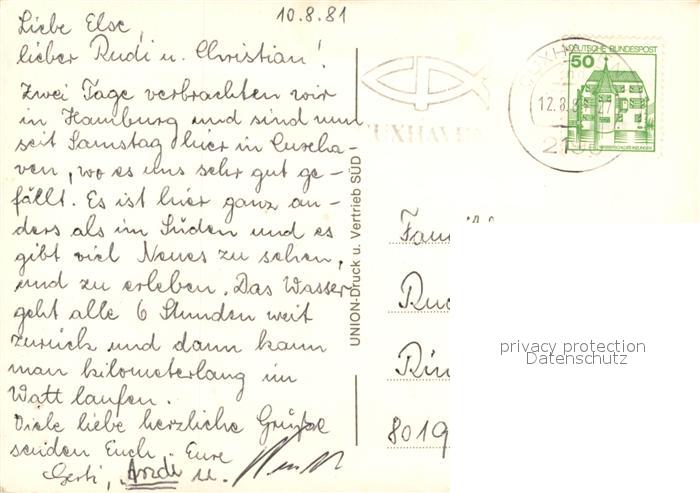 10.8.81
Liebe Else,
lieber Rudi u. Christian!
Zwei Tage verbrachten wir
in Hamburg und sind nun
seit Samstag hier in Cuxha-
ven, wo es uns sehr gut ge-
fällt. Es ist hier ganz an-
ders als im Süden und es
gibt viel Neues zu sehen,
und zu erleben. Das Wasser
geht alle 6 Stunden weit
zurück und dann kann
man kilometerlang im
Watt laufen.
Viele liebe herzliche Grüße
senden Euch, Eure
Gerti, u.
UNION-Druck u. Vertrieb SÜD
CUXHAVEN
DEUTSCHE BUNDESPOST
50
CUXH
12.8.8
Fam
Rud
Rin
8019
privacy protection
Datenschutz